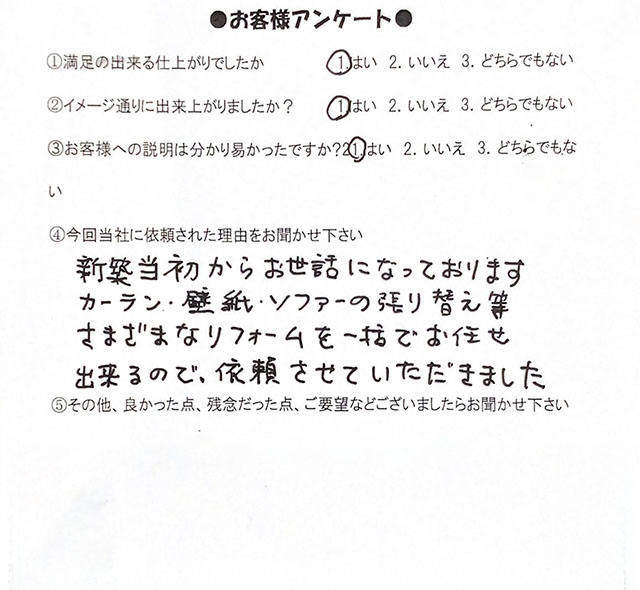 ●お客様アンケート●
①満足の出来る仕上がりでしたか 1.はい 2.いいえ 3.どちらでもない
②イメージ通りに出来上がりましたか？ 1.はい 2.いいえ 3.どちらでもない
③お客様への説明は分かり易かったですか?21.はい 2.いいえ 3.どちらでもな
い
④今回当社に依頼された理由をお聞かせ下さい
新築当初からお世話になっております
カーラン・壁紙・ソファーの張り替え等
さまざまなリフォームを一括でお任せ
出来るので、依頼させていただきました
⑤その他、良かった点、残念だった点、ご要望などございましたらお聞かせ下さい